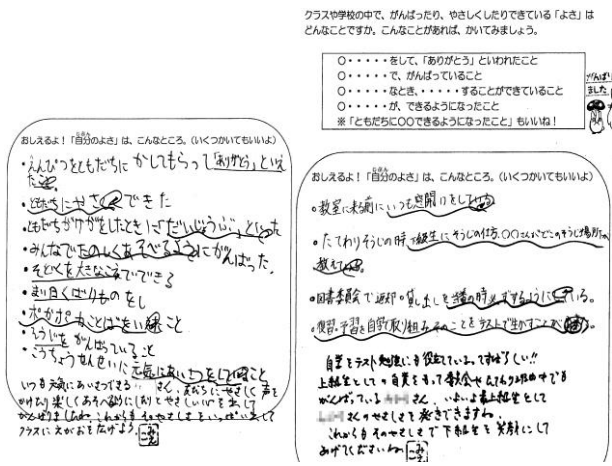 クラスや学校の中で、がんばったり、やさしくしたりできている「よさ」は
どんなことですか。こんなことがあれば、かいてみましょう。
○・・・・・をして、「ありがとう」といわれたこと
○・・・・・で、がんばっていること
○・・・・・なとき、・・・・・することができていること
○・・・・・が、できるようになったこと
※「ともだちに○○できるようになったこと」もいいね！
がんばり
ました
おしえるよ！「自分のよさ」は、こんなところ。（いくつかいてもいいよ）
・えんぴつをともだちにかしてもらって「ありがとう」といえ
たこと
・ともだちにやさしくできた
・ともだちがけがをしたとき「だいじょうぶ」といった
・みんなでたのしくあそべるようにがんばった。
・そとくを大きなこえでできる
・まい日くばりものをし
・ぽかぽかことばをい
・そうじをがんばっていること
・こうちょうせんせいに元気にあいさつをして
いつも元気にあいさつできる さん。友だちにやさしく声を
かけたり楽しくあそべるようにしたりとやさしい心を出して
がんばりましたね。これからもそのやさしさをいっぱい出して
クラスにえがおを広げよう。
おしえるよ！「自分のよさ」は、こんなところ。（いくつかいてもいいよ）
・教室に来る前にいつも窓開けをしている。
・たてわりそうじの時下級生にそうじの仕方、○○さんはどこのそうじ場所
教えている。
・図書委員会で返却・貸し出しを当番の時必ずするようにしている。
・復習・予習を自学で取り組み、そのことをテストで生かすことが
自学をテスト勉強にも役立てている。すばらしい!!
上級生としての自覚をもって委員会やたてわり班の中でも
がんばっている さん。いよいよ最上級生として
さんのやさしさを発きできますね。
これからもそのやさしさで下級生を笑顔にして
あげてくださいね。